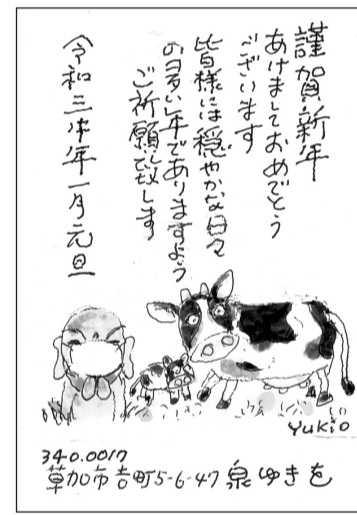 謹賀新年
あけましておめでとう
ございます
皆様には穏やかな日々
の明るい年でありますよう
ご祈願致します
令和三年一月元旦
Yukio
340.0017
草加市吉町5-6-47 泉ゆきを